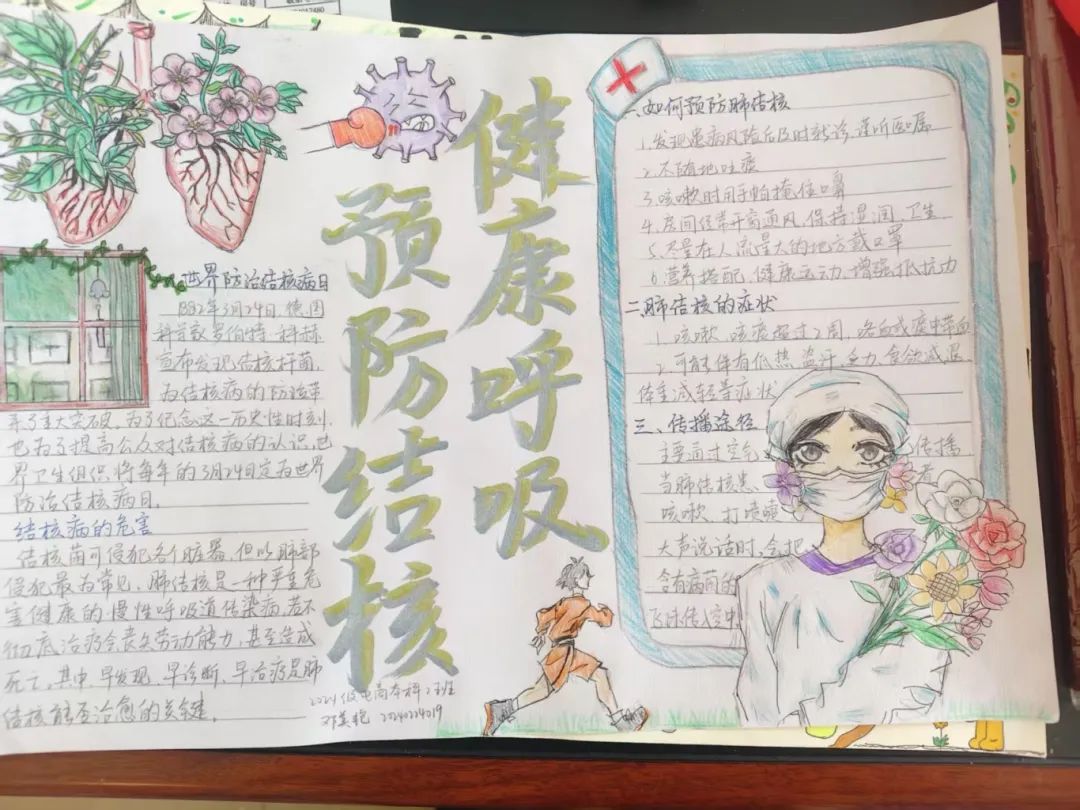 健康呼吸
预防结核
世界防治结核病日
1882年3月24日,德国
科学家罗伯特·科赫
宣布发现结核杆菌,
为结核病的防治带
来了重大突破。为了纪念这一历史性时刻,
也为了提高公众对结核病的认识,世
界卫生组织将每年的3月24日定为世界
防治结核病日。
结核病的危害
结核菌可侵犯各个脏器,但以肺部
侵犯最为常见。肺结核是一种严重危
害健康的慢性呼吸道传染病,若不
彻底治疗会丧失劳动能力,甚至造成
死亡,其中,早发现、早诊断、早治疗是肺
结核能否治愈的关键。
2024级电商本科2班
20240224019
一、如何预防肺结核
1.发现患病风险后及时就诊,谨听医嘱
2.不随地吐痰
3.咳嗽时用手帕掩住口鼻
4.房间经常开窗通风,保持湿润、卫生
5.尽量在人流量大的地方戴口罩
6.营养搭配,健康运动,增强抵抗力
二.肺结核的症状
1.咳嗽、咳痰超过2周,咯血或痰中带血
2.可能伴有低热、盗汗、乏力、食欲减退、
体重减轻等症状
三、传播途径
主要通过空气 传播
当肺结核患 者
咳嗽、打喷嚏
大声说话时,会把
含有病菌的
飞沫传入空中